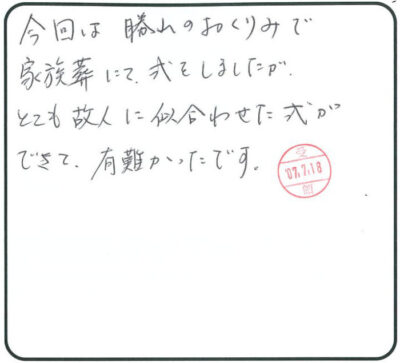 今回は 勝山のおくりみで
家族葬にて、式をしましたが、
とても故人に似合わせた式が
できて、有難かったです。
受
'07.7.18